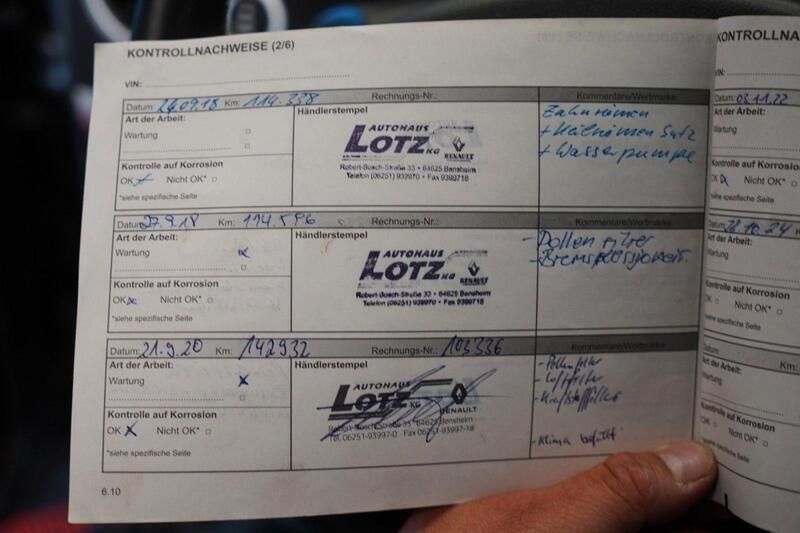 KONTROLLNACHWEISE (2/6)
VIN:
Datum: 24.09.18 Km: 114.338 Rechnungs-Nr.: Kommentare/Wertmarke
Art der Arbeit:
Wartung
Kontrolle auf Korrosion
OK Nicht OK*
*siehe spezifische Seite
Händlerstempel
AUTOHAUS
LOTZ KG
RENAULT
Robert-Bosch-Straße 33 • 64625 Bensheim
Telefon (06251) 939970 • Fax 9399718
Zahnriemen
+ Keilriemen Satz
+ Wasserpumpe
Datum: 27.9.18 Km: 114.596 Rechnungs-Nr.: Kommentare/Wertmarke
Art der Arbeit:
Wartung
Kontrolle auf Korrosion
OK Nicht OK*
*siehe spezifische Seite
Händlerstempel
AUTOHAUS
LOTZ KG
RENAULT
Robert-Bosch-Straße 33 • 64625 Bensheim
Telefon (06251) 939970 • Fax 9399718
- Pollenfilter
- Bremsflüssigkeit
Datum: 21.9.20 Km: 142932 Rechnungs-Nr.: 103336 Kommentare/Wertmarke
Art der Arbeit:
Wartung
Kontrolle auf Korrosion
OK Nicht OK*
*siehe spezifische Seite
Händlerstempel
AUTOHAUS
LOTZ KG
RENAULT
Robert-Bosch-Straße 33 · 64625 Bensheim
Tel. 06251-93997-0 · Fax 06251-93997-18
- Pollenfilter
- Luftfilter
- Kraftstofffilter
- Klima befüllt
6.10
KONTROLLNA
VIN:
Datum: 03.11.22
Art der Arbeit:
Wartung
Kontrolle auf Korrosion
OK Nicht OK*
*siehe spezifische Seite
Datum: 22.10.24
Art der Arbeit:
Wartung
Kontrolle auf Korrosion
OK Nicht OK*
*siehe spezifische Seite
Datum:
Art der Arbeit:
Wartung
Kontrolle auf Korrosion
OK Nicht OK*
*siehe spezifische Seite